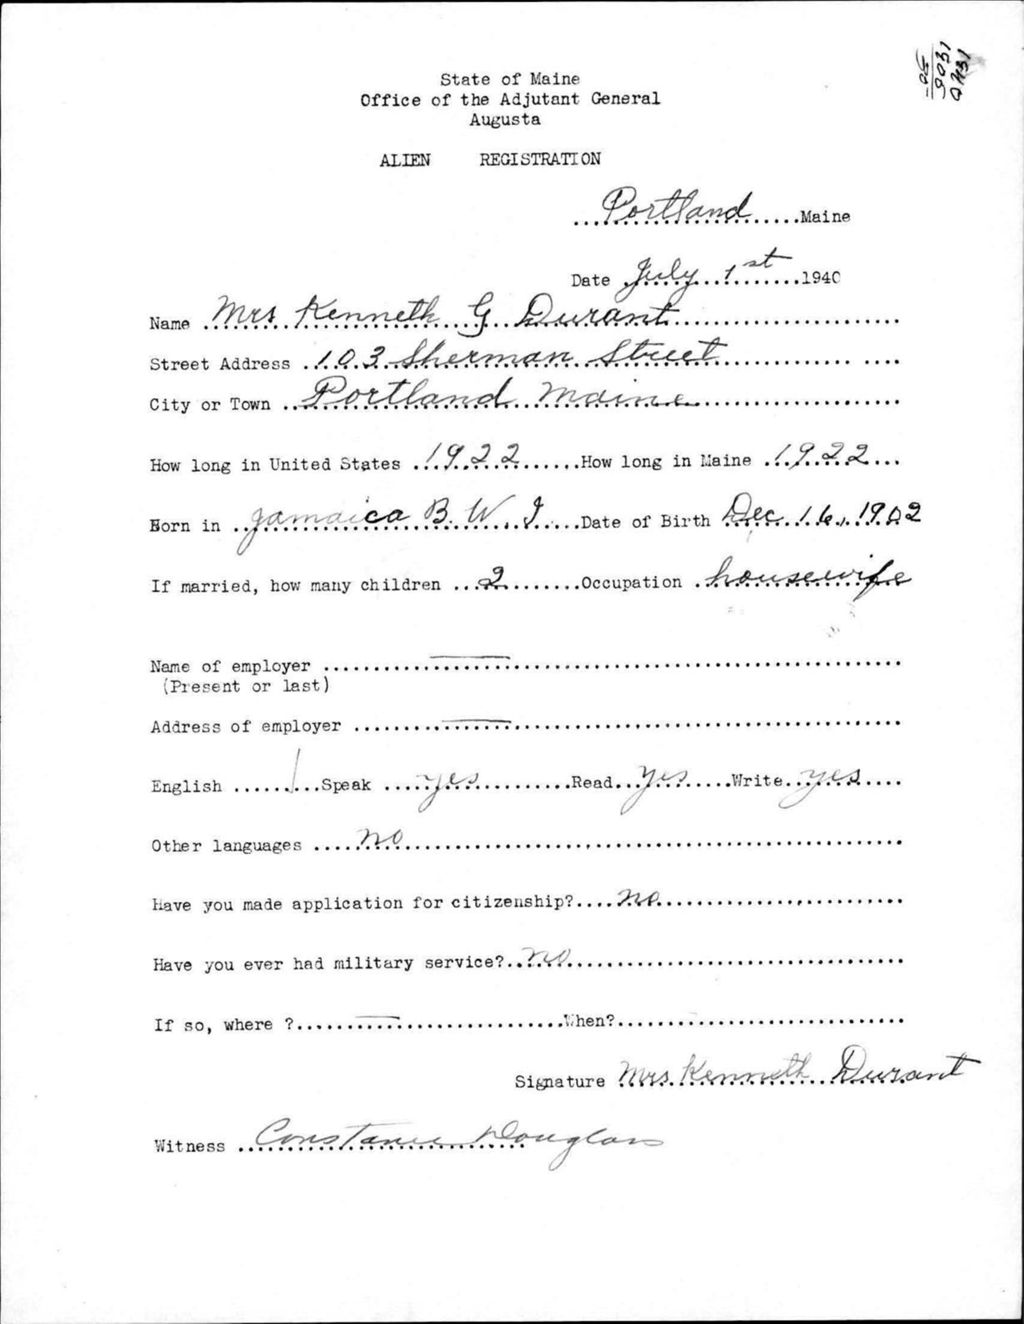 State of Maine
Office of the Adjutant General
Augusta
ALIEN REGISTRATION
Portland Maine
Date July 1st 1940
Name Mrs Kenneth G Durant
Street Address 103 Sherman Street
City or Town Portland Maine
How long in United States 1922 How long in Maine 1922
Born in Jamaica B. W. I. Date of Birth Dec. 16, 1902
If married, how many children 2 Occupation housewife
Name of employer
(Present or last)
Address of employer
English Speak yes Read yes Write yes
Other languages no
Have you made application for citizenship? no
Have you ever had military service? no
If so, where ? When?
Signature Mrs. Kenneth Durant
Witness Constance Douglass